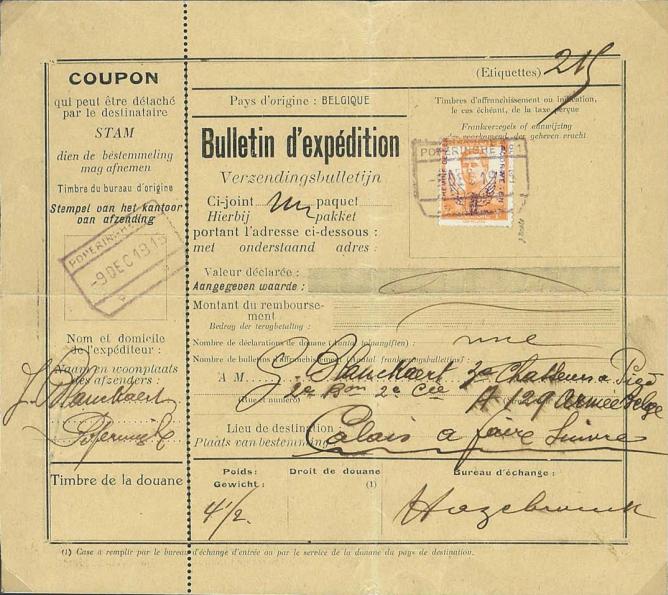 COUPON
qui peut être détaché
par le destinataire
STAM
dien de bestemmeling
mag afnemen
Timbre du bureau d'origine
Stempel van het kantoor
van afzending
POPERINGHE
-9 DEC 1915
Nom et domicile
de l'expéditeur :
Naam en woonplaats
des afzenders :
J. Blanckaert
Poperinghe
Timbre de la douane
(Etiquettes) 215
Pays d'origine : BELGIQUE
Bulletin d'expédition
Verzendingsbulletijn
Ci-joint un paquet
Hierbij pakket
portant l'adresse ci-dessous :
met onderstaand adres :
Timbres d'affranchissement ou indication,
le cas échéant, de la taxe perçue
Frankeerzegels of aanwijzing
der voorkomend, der geheven vracht
POPERINGHE
-9 DEC 1915
Valeur déclarée :
Aangegeven waarde :
Montant du rembourse-
ment
Bedrag der terugbetaling :
Nombre de déclarations de douane une
Nombre de bulletins d'affranchissement (Aantal frankeerbulletins) :
A M. G. Blanckaert 3e Chasseurs a Pied
2e Bon 2e Cie A/29 Armée Belge
(Rue et numéro)
Lieu de destination :
Plaats van bestemming
Calais a faire Suivre
Poids:
Gewicht:
4 1/2.
Droit de douane
(1)
Bureau d'échange :
Hazebrouck
(1) Case à remplir par le bureau d'échange d'entrée ou par le service de la douane du pays de destination.